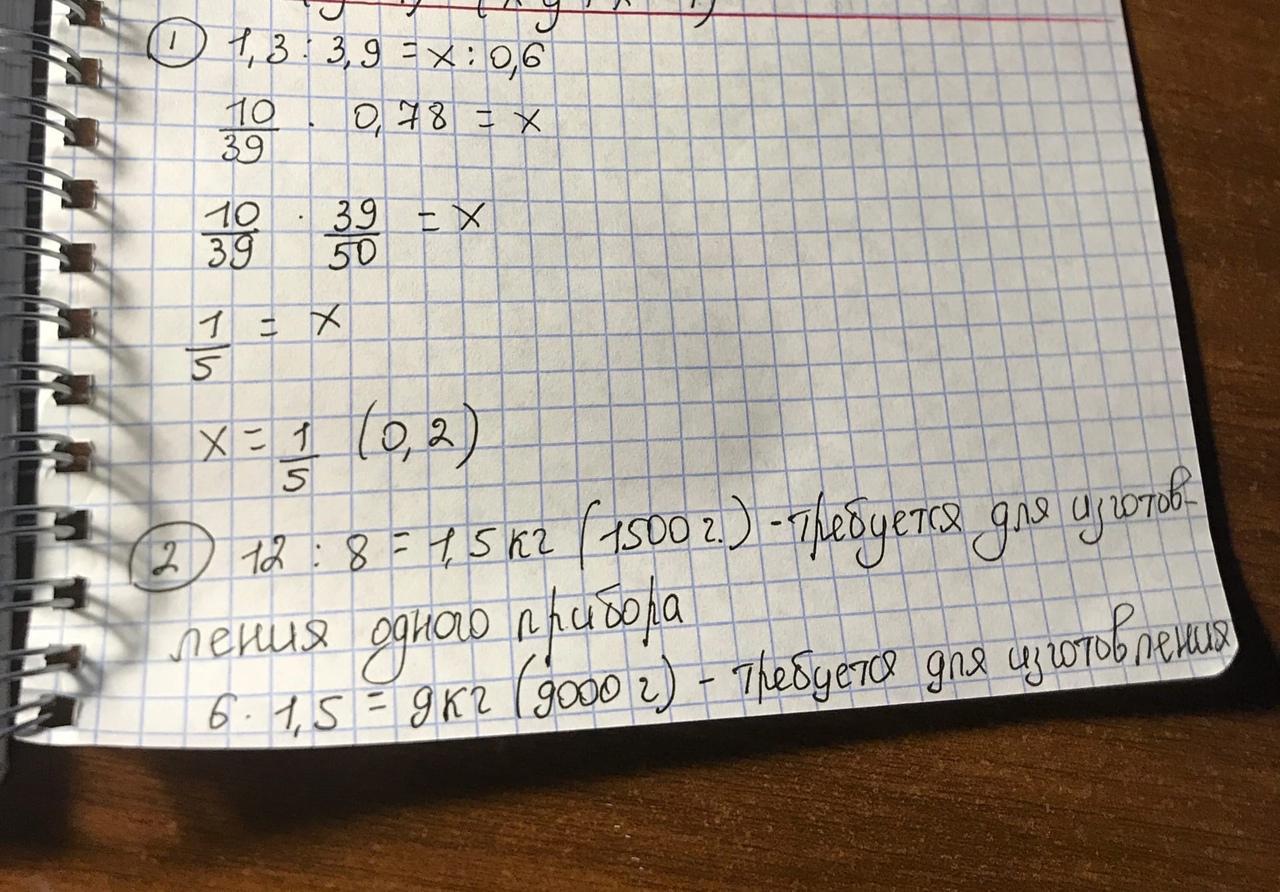 1 1,3 : 3,9 = x : 0,6
10/39 · 0,78 = x
10/39 · 39/50 = x
1/5 = x
x = 1/5 (0,2)
2 12 : 8 = 1,5 кг (1500 г.) - требуется для изготов-
ления одного прибора
6 · 1,5 = 9 кг (9000 г) - требуется для изготовления